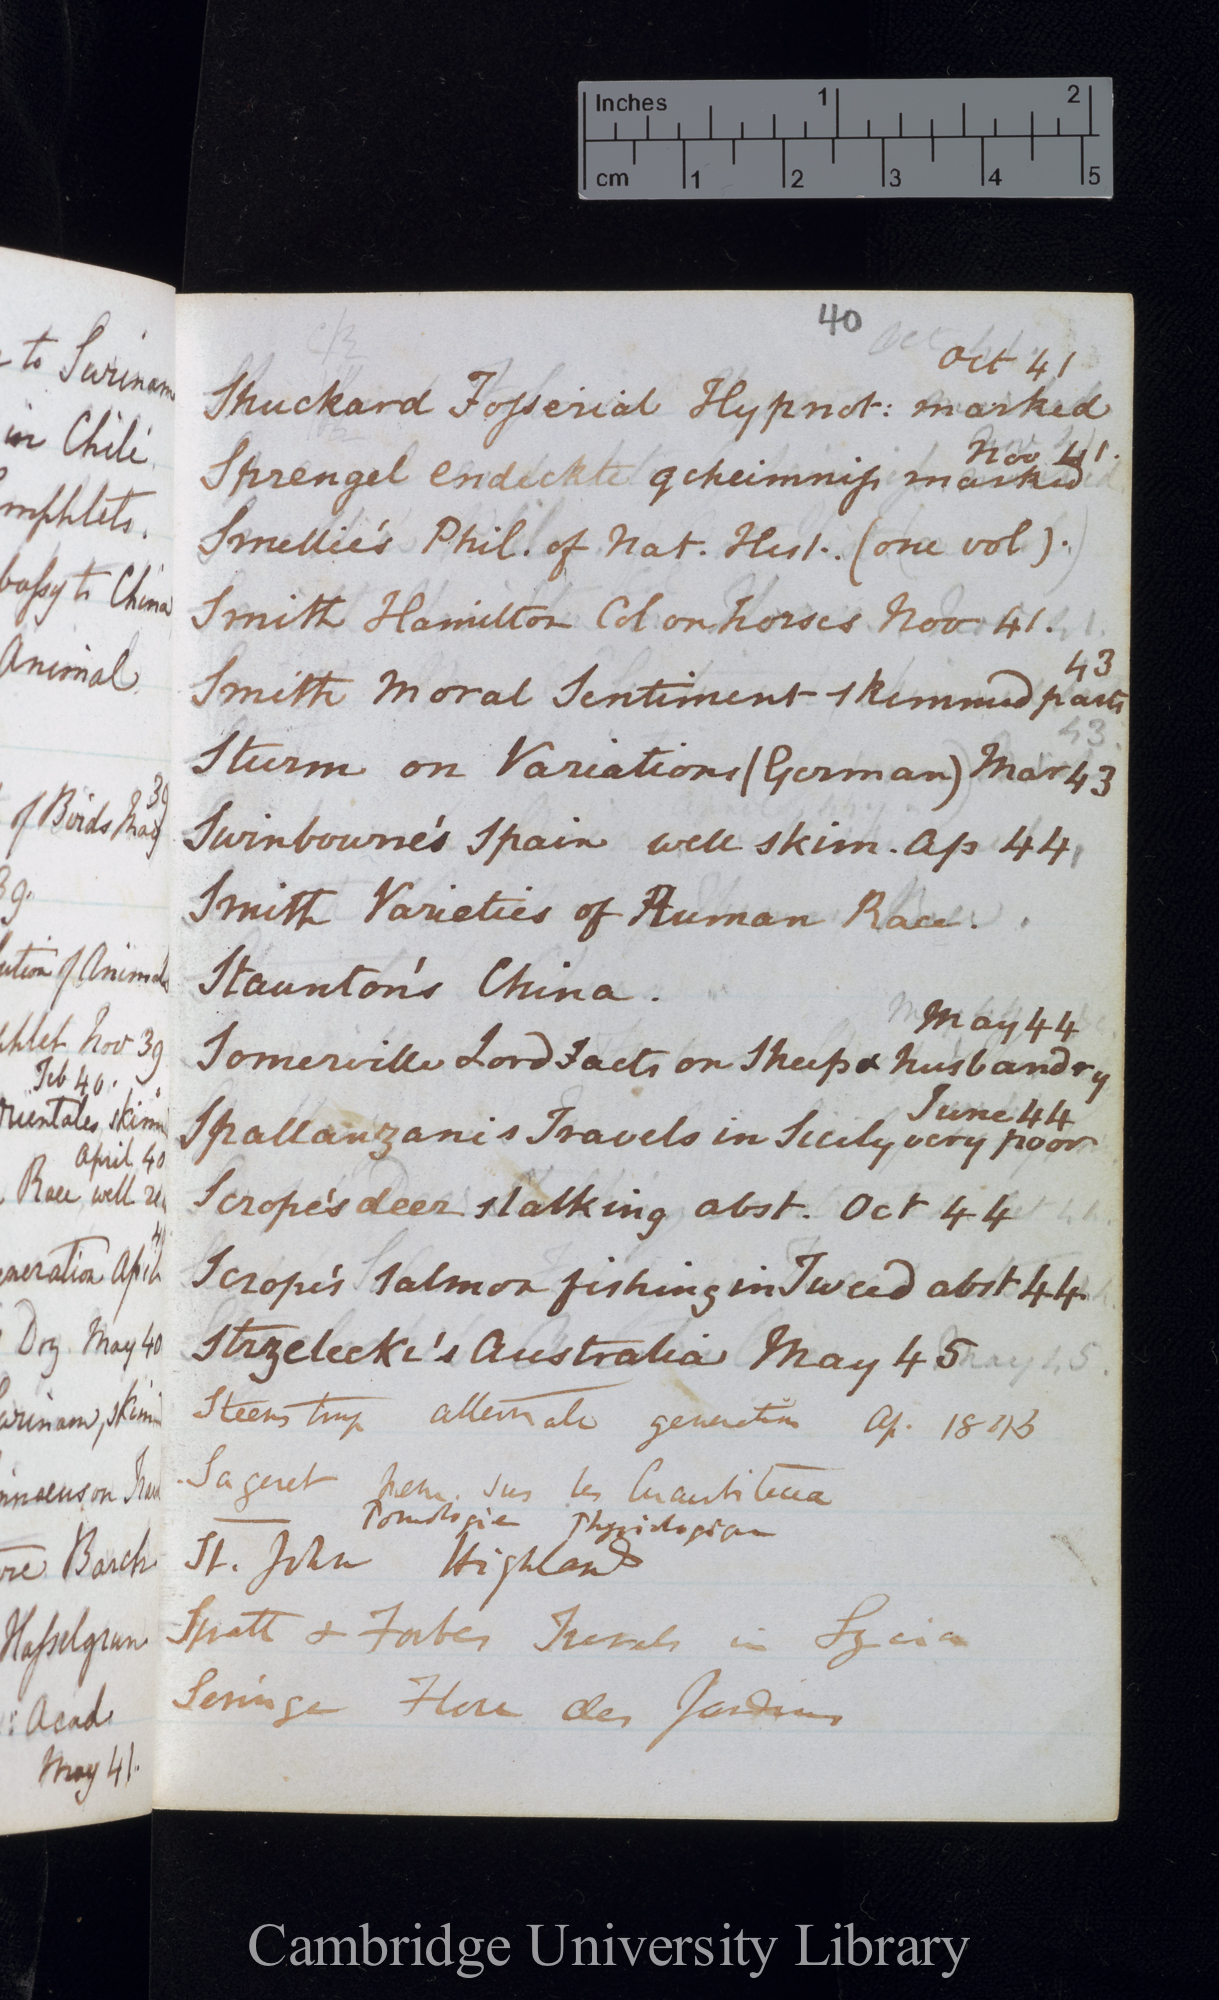 Inches 1 2
cm 1 2 3 4 5
to Surinam
in Chili.
bassy to China
Animal
39
of Birds May
39.
ution of Animals
phlet Nov 39
Feb 40.
rientales, skim
April 40
Race, well re
eneration April
Dry May 40
urinam, skim
innaeus on
Barch
Hasselgrun
: Acad.
May 41.
40
Oct 41
Shuckard Fosserial Hypnot: marked
Nov 41.
Sprengel endeckte geheimniss marked
Smellie's Phil. of Nat. Hist. (one vol).
Smith Hamilton Col on horses Nov 41.
43
Smith Moral Sentiment skimmed parts
Sturm on Variations (German) Mar 43
Swinbourne's Spain well skim. Ap 44
Smith Varieties of Human Race.
Staunton's China.
May 44
Somerville Lord Facts on Sheep & husbandry
June 44
Spallanzani's Travels in Sicily very poor
Scrope's deer stalking abst. Oct 44
Scrope's Salmon fishing in Tweed abst 44.
Strzelecki's Australia May 45
Steenstrup alternate generation Ap. 1845
Sageret Mem. sur les Cucurbitacea
Pomologie Physiologique
St. John Highlands
Spratt & Forbes Travels in Lycia
Seringe Flore des Jardins
Cambridge University Library